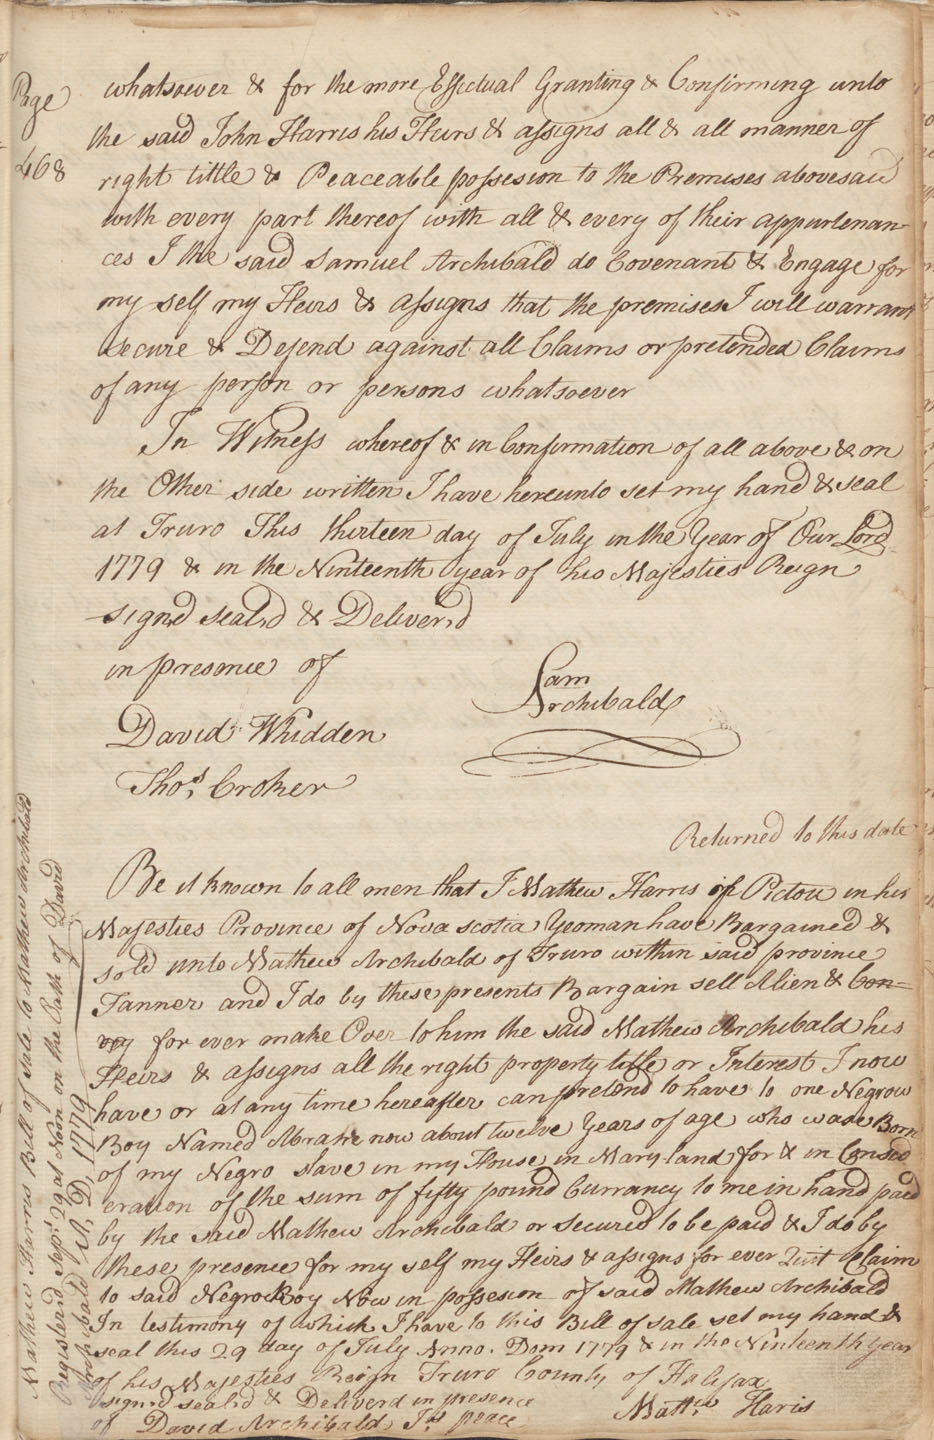 Page
468
whatsoever & for the more Effectual Granting & Confirming unto
the said John Harris his Heirs & assigns all & all manner of
right tittle & Peaceable possesion to the Premises abovesaid
with every part thereof with all & every of their appurtenan-
ces I the said Samuel Archibald do Covenant & Engage for
my self my Heirs & assigns that the premises I will warrant
secure & Defend against all Claims or pretended Claims
of any person or persons whatsoever
In Witness whereof & in Confirmation of all above & on
the Other side written I have hereunto set my hand & seal
at Truro This thirteen day of July in the Year of Our Lord
1779 & in the Ninteenth year of his Majesties Reign
signd seald & Deliverd
in presence of
Sam
Archibald
David Whidden
Thos. Croker
Returned to this date
Be it known to all men that I Mathew Harris of Pictou in his
Majesties Province of Nova scotia Yeoman have Bargained &
sold unto Mathew Archibald of Truro within said province
Tanner and I do by these presents Bargain sell Alien & Con=
vey for ever make Over to him the said Mathew Archibald his
Heirs & assigns all the right property title or Interest I now
have or at any time hereafter can pretend to have to one Negrow
Boy Named Abram now about twelve Years of age who wase Born
of my Negro slave in my House in Maryland for & in Consid
eration of the sum of fifty pound Currancy to me in hand paid
by the said Mathew Archibald or secured to be paid & I do by
these presence for my self my Heirs & assigns for ever Quit Claim
to said Negrow Boy Now in possesion of said Mathew Archibald
In testimony of which I have to this Bill of sale set my hand &
seal this 29 day of July Anno. Dom 1779 & in the Ninteenth year
of his Majesties Reign Truro County of Halifax
signd seald & Deliverd in presence
of David Archibald Jus. peace
Mattw. Haris
Mathew Harris Bill of Sale to Mathew Archibald
Registerd Sepr. 29 at Noon on the Oath of David
Archibald A,D, 1779